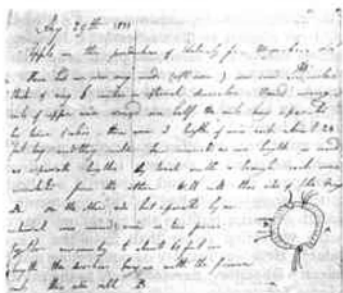 Aug 29th 1831
Expts on the production of Electricity from Magnetism etc
Have had an iron ring made (soft iron) iron round and 7/8 inches
thick and ring 6 inches in external diameter. Wound many
coils of copper wire round one half the coils being separated
by twine & calico there were 3 lengths of wire each about 24
feet long and they could be connected as one length or used
as separate lengths. By trial with a trough each was
insulated from the other Will call this side of the ring
A. On the other side but separated by an
interval was wound wire in two pieces
together amounting to about 60 feet in
length the direction being as with the former
coils this side call B